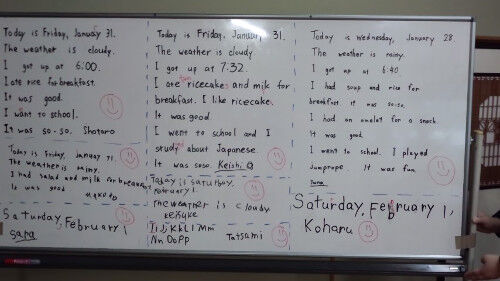 Today is Friday, January 31.
The weather is cloudy.
I got up at 6:00.
I ate rice for breakfast.
It was good.
I want to school.
It was so-so. Shotaro
Today is Friday, January 31.
The weather is rainy.
I had salad and milk for breakfast
It was good
Saturday, February 1
sara
Today is Friday, January 31.
The weather is cloudy
I got up at 7:32.
I ate two ricecakes and milk for
breakfast. I like ricecake.
It was good.
I went to school and I
study about Japanese.
It was soso. Keishi
Today is saturboy.
February 1.
The weather is cloudy.
keisuke
Ii Jj Kk Ll Mm
Nn Oo Pp Tatsumi
Today is Wednesday, January 28.
The weather is rainy.
I got up at 6:40.
I had soup and rice for
breakfast it was so.so.
I had an omelet for a snack.
It was good.
I went to school. I played
Jumprope It was fun.
Saturday, February 1,
Koharu